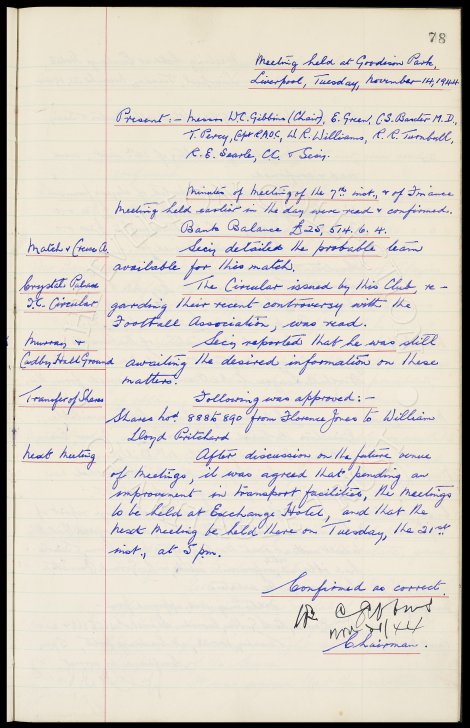 78
Meeting held at Goodison Park,
Liverpool, Tuesday, November 14, 1944
Present :- Messrs W.C. Gibbins (Chair), E. Green, C.S. Baxter M.D.,
T. Percy, Capt R.A.O.C, W.R. Williams, R.R. Turnbull,
R.E. Searle, CC. & Secy.
Minutes of Meeting of the 7th inst., & of Finance
Meeting held earlier in the day were read & confirmed.
Bank Balance £25,514. 6. 4.
Match v Crewe A.
Secy detailed the probable team
available for this match.
Crystal Palace
F.C. Circular
The Circular issued by this Club, re-
garding their recent controversy with the
Football Association, was read.
Murray &
Cadby Hall Ground
Secy reported that he was still
awaiting the desired information on these
matters.
Transfer of Shares
Following was approved :-
Shares nos. 888 to 890 from Florence Jones to William
Lloyd Pritchard
Next Meeting
After discussion on the future venue
of Meetings, it was agreed that pending an
improvement in transport facilities, the Meetings
to be held at Exchange Hotel, and that the
next Meeting be held there on Tuesday, the 21st
inst., at 5 pm.
Confirmed as correct.
W C Gibbins
Nov 21/44
Chairman.